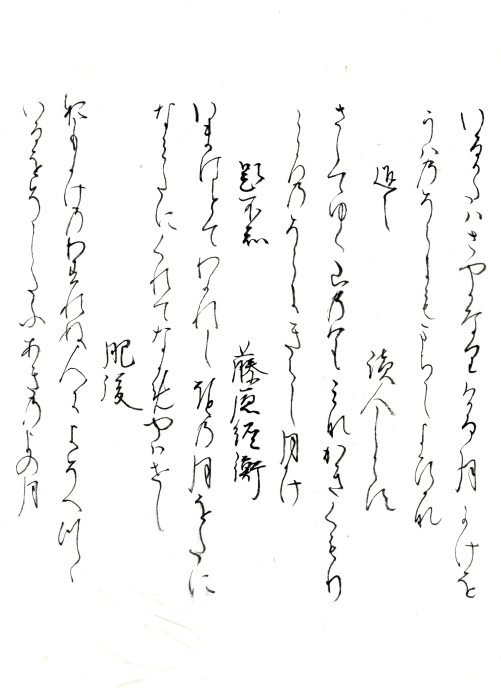 いるかたはさやかなりける月かけを
うはのそらにもまちしよひかな
返し　讀人しらす
さしてゆく山のはもみなかきくもり
こゝろのそらにきえし月かけ
題不知　藤原經衡
いまはとてわかれし程の月をたに
なみたにくれてなかめやはせし
肥後
おもかけのわすれぬ人によそへつゝ
いるをそしたふあきのよの月